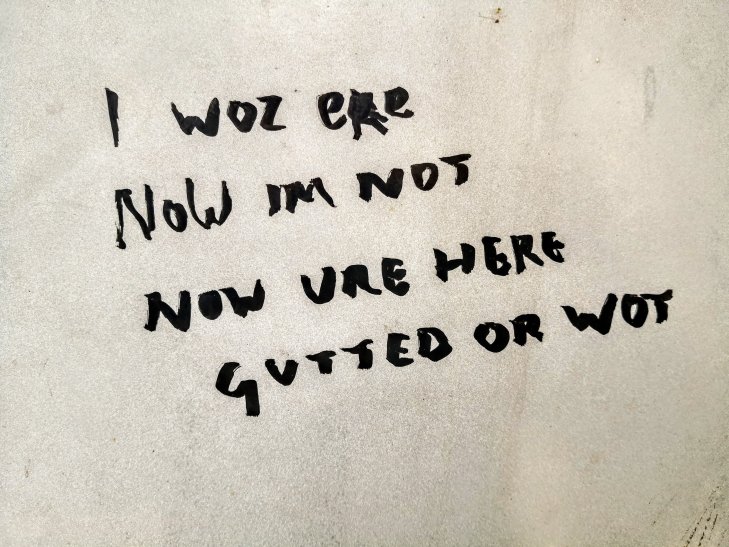 I WOZ ERE
NOW IM NOT
NOW URE HERE
GUTTED OR WOT